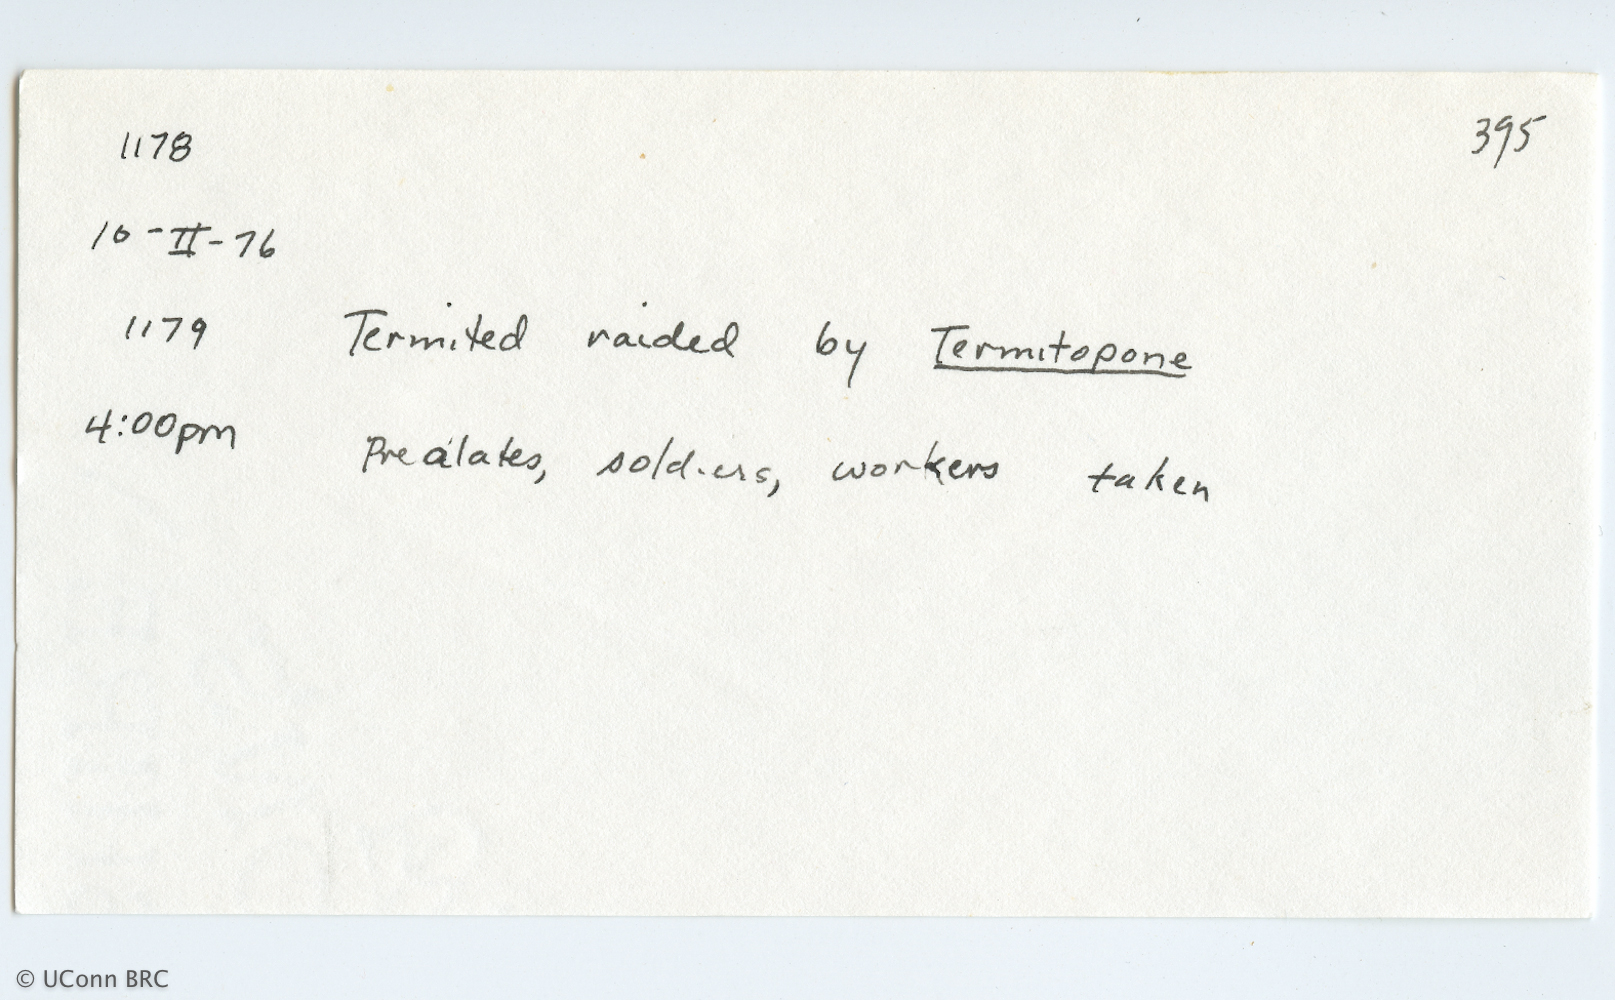 1178
395
10-II-76
1179 Termited raided by Termitopone
4:00pm
Prealates, soldiers, workers taken
© UConn BRC